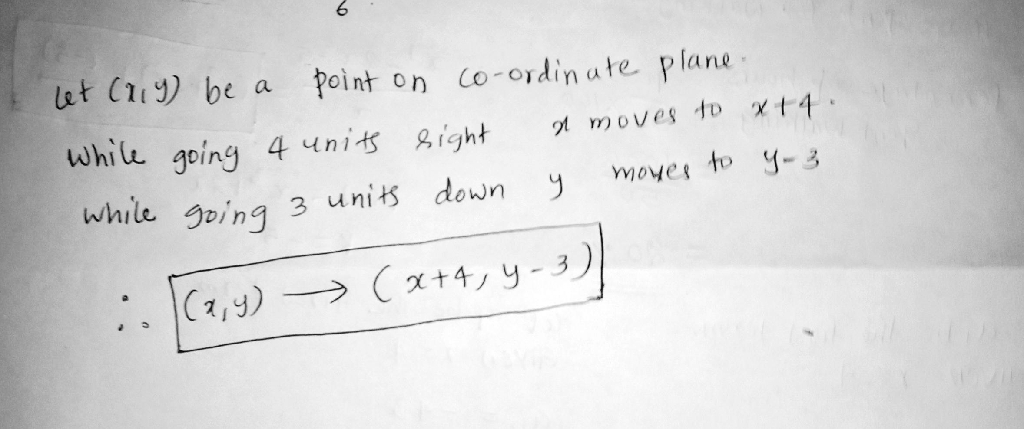 6
let (x,y) be a point on co-ordinate plane.
while going 4 units right x moves to x+4.
while going 3 units down y moves to y-3
∴ (x,y) → (x+4, y-3)